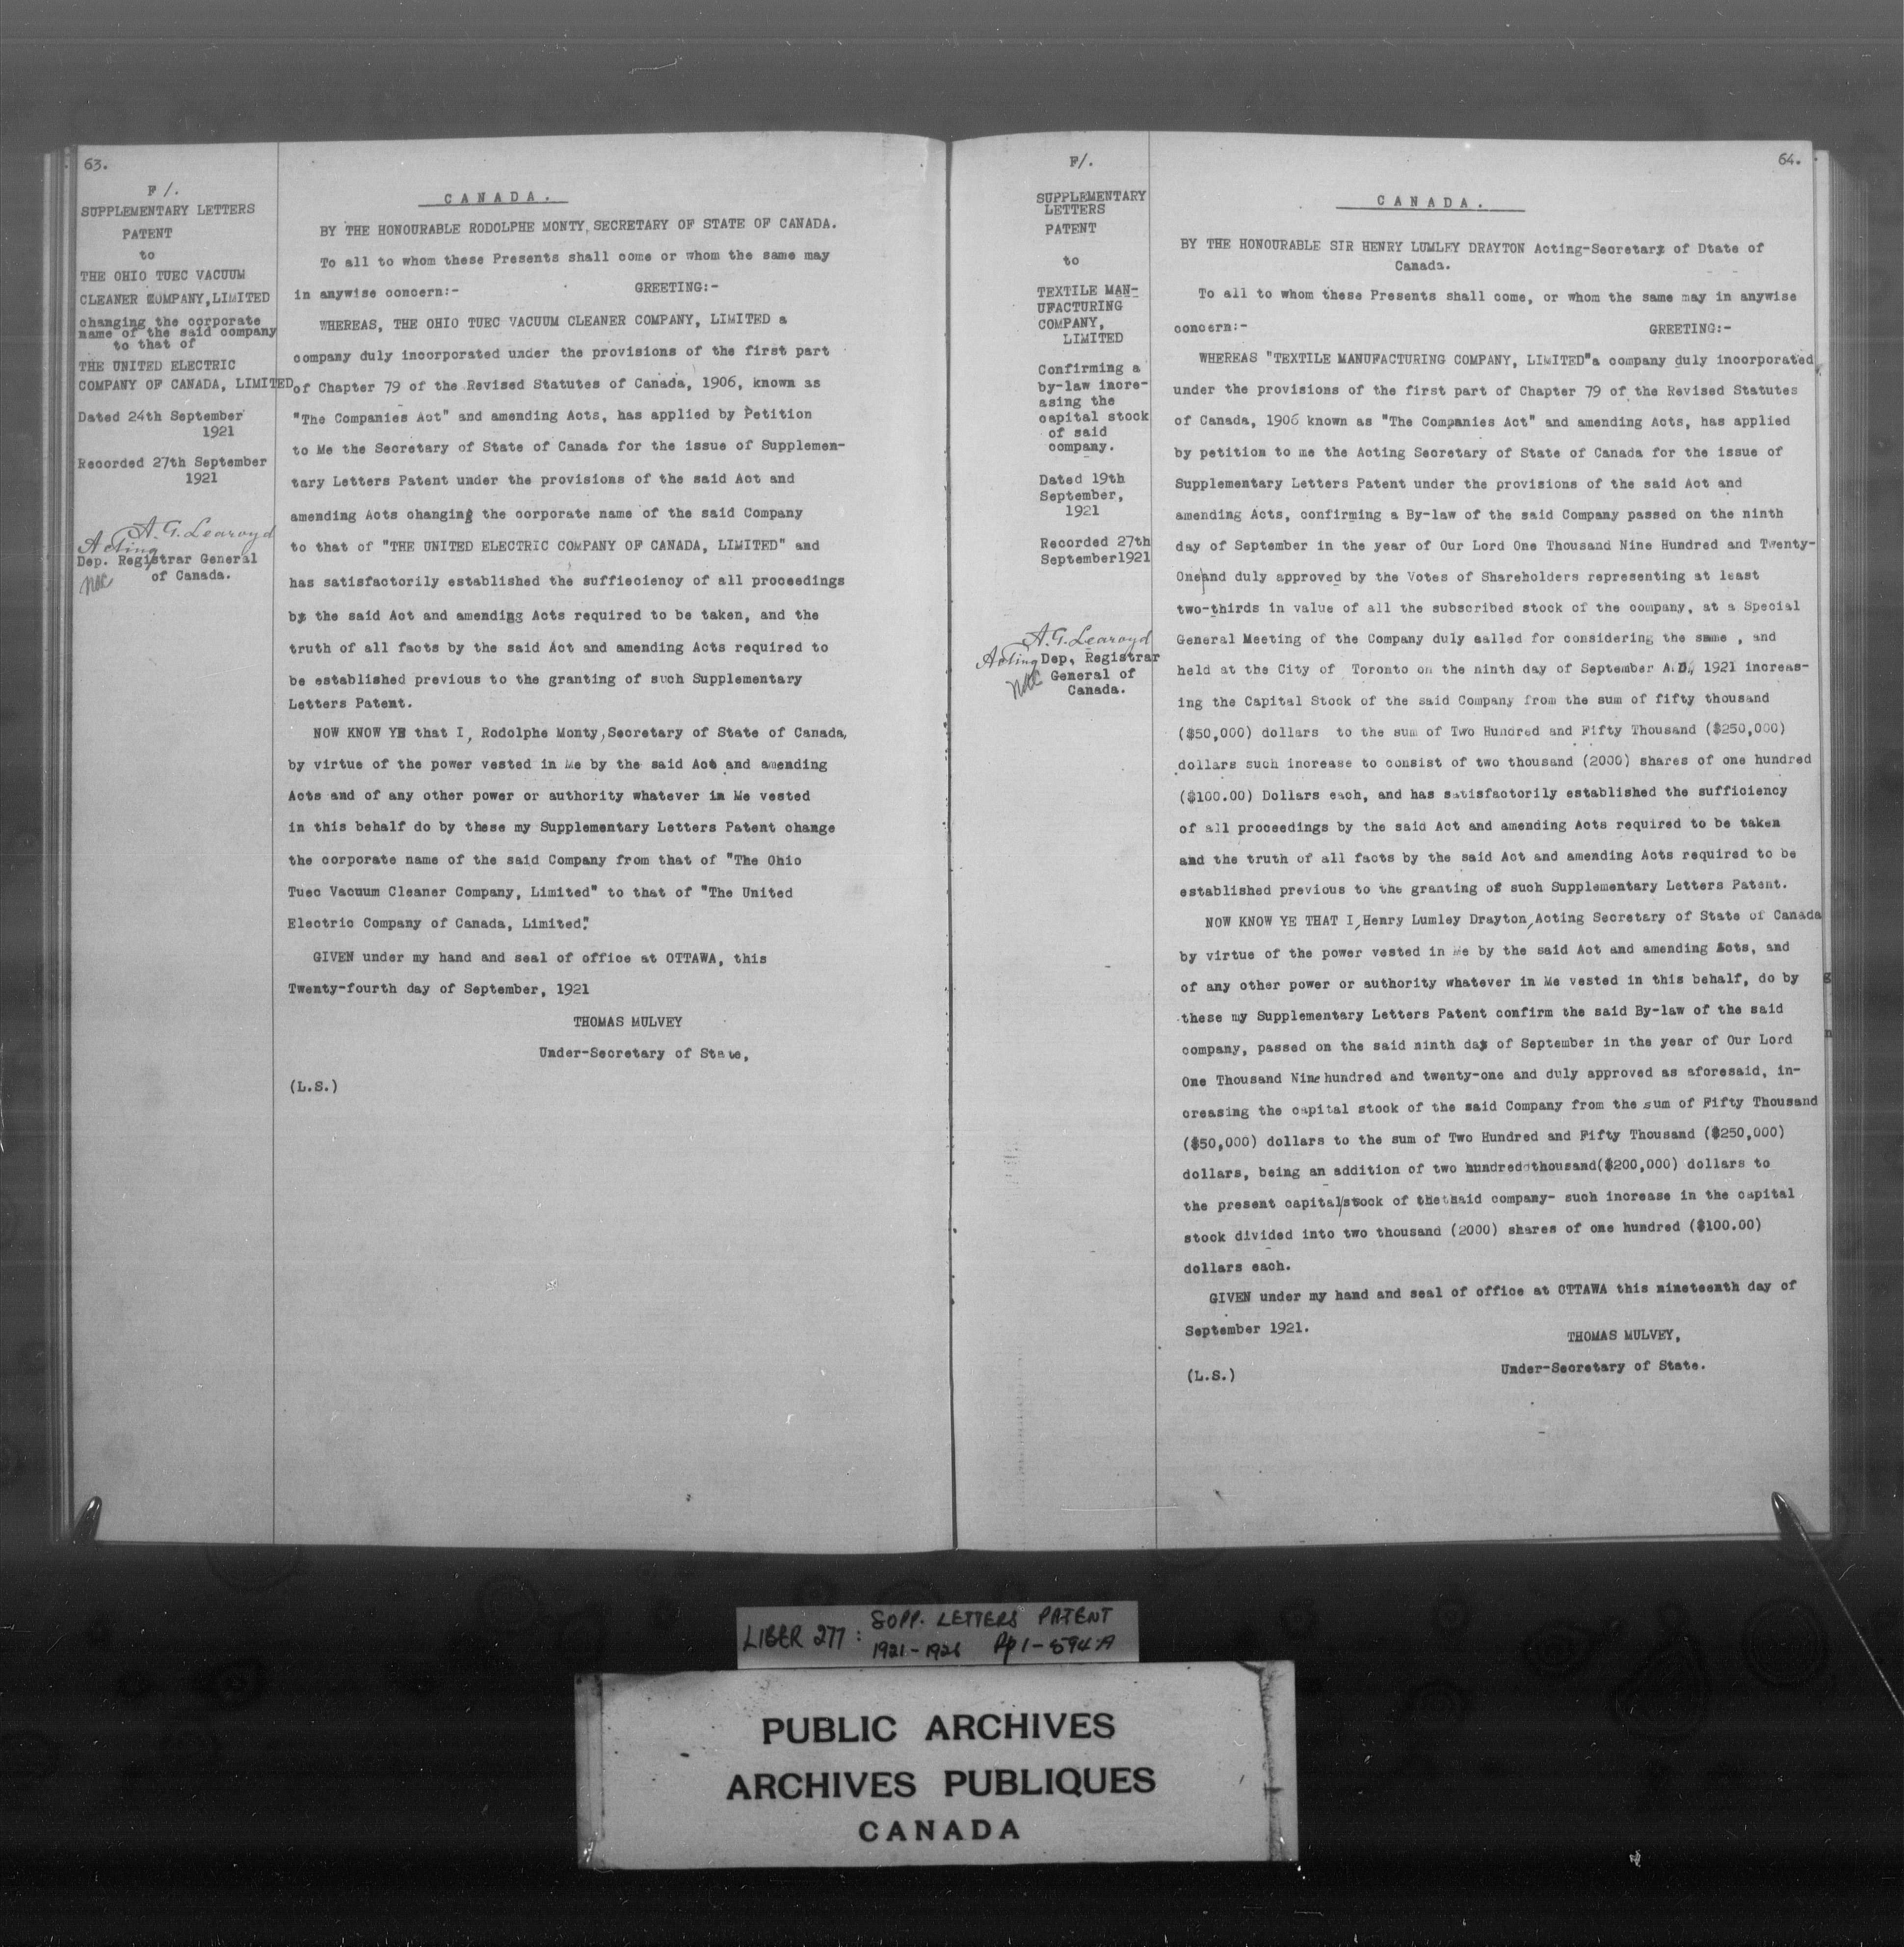 63.
F /.
SUPPLEMENTARY LETTERS
PATENT
to
THE OHIO TUEC VACUUM
CLEANER COMPANY,LIMITED
changing the corporate
name of the said company
to that of
THE UNITED ELECTRIC
COMPANY OF CANADA, LIMITED
Dated 24th September
1921
Recorded 27th September
1921
A. G. Learoyd
Acting
Dep. Registrar General
of Canada.
CANADA.
BY THE HONOURABLE RODOLPHE MONTY, SECRETARY OF STATE OF CANADA.
To all to whom these Presents shall come or whom the same may
in anywise concern:- GREETING:-
WHEREAS, THE OHIO TUEC VACUUM CLEANER COMPANY, LIMITED a
company duly incorporated under the provisions of the first part
of Chapter 79 of the Revised Statutes of Canada, 1906, known as
"The Companies Act" and amending Acts, has applied by Petition
to Me the Secretary of State of Canada for the issue of Supplemen-
tary Letters Patent under the provisions of the said Act and
amending Acts changing the corporate name of the said Company
to that of "THE UNITED ELECTRIC COMPANY OF CANADA, LIMITED" and
has satisfactorily established the suffieciency of all proceedings
by the said Act and amending Acts required to be taken, and the
truth of all facts by the said Act and amending Acts required to
be established previous to the granting of such Supplementary
Letters Patent.
NOW KNOW YE that I, Rodolphe Monty, Secretary of State of Canada,
by virtue of the power vested in Me by the said Act and amending
Acts and of any other power or authority whatever in Me vested
in this behalf do by these my Supplementary Letters Patent change
the corporate name of the said Company from that of "The Ohio
Tuec Vacuum Cleaner Company, Limited" to that of "The United
Electric Company of Canada, Limited".
GIVEN under my hand and seal of office at OTTAWA, this
Twenty-fourth day of September, 1921
THOMAS MULVEY
Under-Secretary of State,
(L.S.)
F/.
SUPPLEMENTARY
LETTERS
PATENT
to
TEXTILE MAN-
UFACTURING
COMPANY,
LIMITED
Confirming a
by-law incre-
asing the
capital stock
of said
company.
Dated 19th
September,
1921
Recorded 27th
September1921
A. G. Learoyd
Acting Dep. Registrar
General of
Canada.
64.
CANADA.
BY THE HONOURABLE SIR HENRY LUMLEY DRAYTON Acting-Secretary of Dtate of
Canada.
To all to whom these Presents shall come, or whom the same may in anywise
concern:- GREETING:-
WHEREAS "TEXTILE MANUFACTURING COMPANY, LIMITED"a company duly incorporated
under the provisions of the first part of Chapter 79 of the Revised Statutes
of Canada, 1906 known as "The Companies Act" and amending Acts, has applied
by petition to me the Acting Secretary of State of Canada for the issue of
Supplementary Letters Patent under the provisions of the said Act and
amending Acts, confirming a By-law of the said Company passed on the ninth
day of September in the year of Our Lord One Thousand Nine Hundred and Twenty-
One/and duly approved by the Votes of Shareholders representing at least
two-thirds in value of all the subscribed stock of the company, at a Special
General Meeting of the Company duly called for considering the same , and
held at the City of Toronto on the ninth day of September A.D., 1921 increas-
ing the Capital Stock of the said Company from the sum of fifty thousand
($50,000) dollars to the sum of Two Hundred and Fifty Thousand ($250,000)
dollars such increase to consist of two thousand (2000) shares of one hundred
($100.00) Dollars each, and has satisfactorily established the sufficiency
of all proceedings by the said Act and amending Acts required to be taken
and the truth of all facts by the said Act and amending Acts required to be
established previous to the granting of such Supplementary Letters Patent.
NOW KNOW YE THAT I, Henry Lumley Drayton, Acting Secretary of State of Canada
by virtue of the power vested in Me by the said Act and amending Acts, and
of any other power or authority whatever in Me vested in this behalf, do by
these my Supplementary Letters Patent confirm the said By-law of the said
company, passed on the said ninth day of September in the year of Our Lord
One Thousand Nine hundred and twenty-one and duly approved as aforesaid, in-
creasing the capital stock of the said Company from the sum of Fifty Thousand
($50,000) dollars to the sum of Two Hundred and Fifty Thousand ($250,000)
dollars, being an addition of two hundred thousand($200,000) dollars to
the present capital/stock of the said company- such increase in the capital
stock divided into two thousand (2000) shares of one hundred ($100.00)
dollars each.
GIVEN under my hand and seal of office at OTTAWA this nineteenth day of
September 1921.
THOMAS MULVEY,
Under-Secretary of State.
(L.S.)
LIBER 277: SUPP. LETTERS PATENT
1921-1926 Pp 1-594A
PUBLIC ARCHIVES
ARCHIVES PUBLIQUES
CANADA